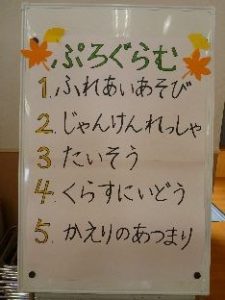 ぷろぐらむ
1. ふれあいあそび
2. じゃんけんれっしゃ
3 たいそう
4. くらすにいどう
5. かえりのあつまり